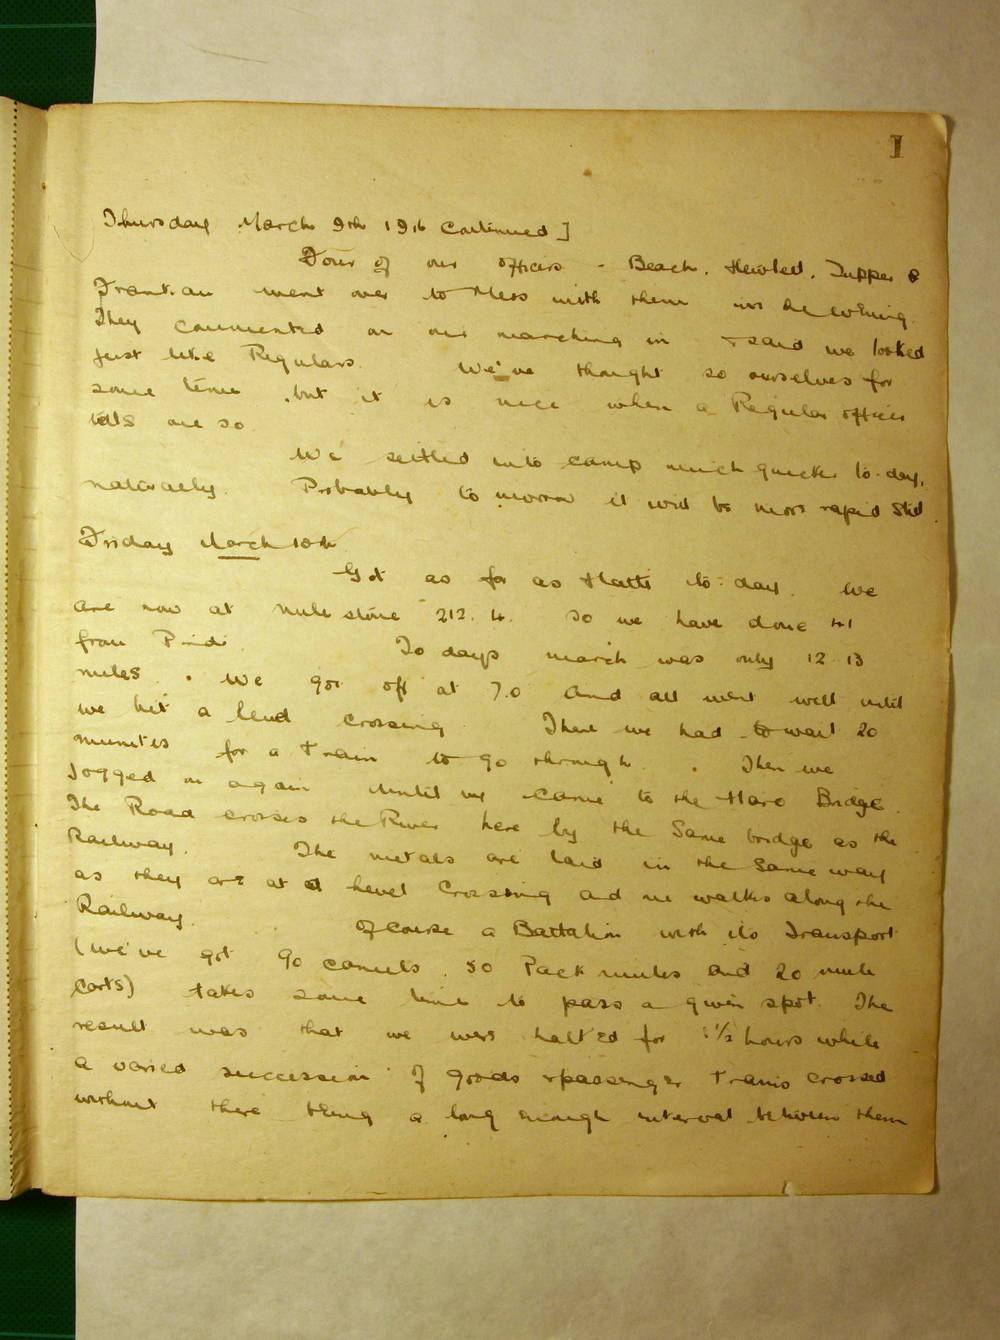 1
Thursday March 9th 1916 Continued]
Four of our officers - Beach, Hewlett, Tupper &
went over to Mess with them in the evening.
They commented on our marching in & said we looked
just like Regulars. We've thought so ourselves for
some time, but it is nice when a Regular officer
tells one so.
We settled into camp much quicker to-day,
naturally. Probably to morrow it will be more rapid still
Friday March 10th
Got as far as Hatti to-day. We
are now at mile stone 212.4. So we have done 41
from Pindi. To days march was only 12.13
miles. We got off at 7.0 and all went well until
we hit a level crossing. There we had to wait 20
minutes for a train to go through. Then we
jogged on again until we came to the Haro Bridge.
The Road crosses the River here by the same bridge as the
Railway. The metals are laid in the same way
as they are at a level crossing and we walked along the
Railway. Of course a Battalion with its Transport
(we've got 90 camels, 50 Pack mules and 20 mule
carts) takes some time to pass a given spot. The
result was that we were halted for 1½ hours while
a varied succession of goods & passenger trains crossed
without there being a long enough interval between them